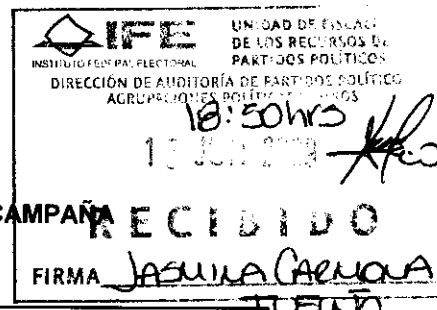 IFE
INSTITUTO FEDERAL ELECTORAL
UNIDAD DE FISCALI
DE LOS RECURSOS DE
PARTIDOS POLÍTICOS
DIRECCIÓN DE AUDITORÍA DE PARTIDOS POLÍTICO
AGRUPACIONES POLÍTICAS
18:50hrs
CAMPAÑA
RECIBIDO
FIRMA JASMINA CARMONA